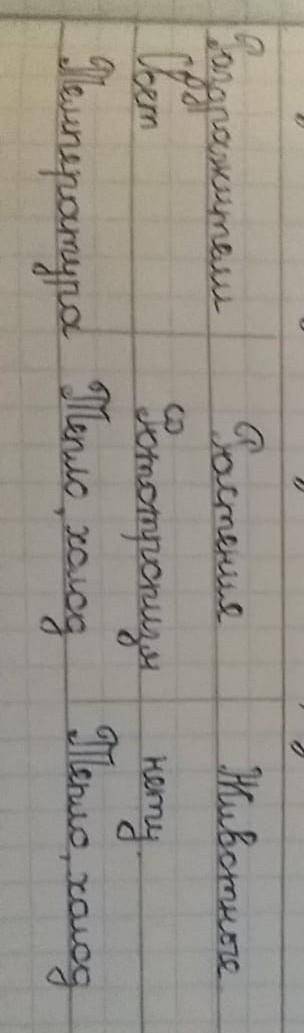 Раздражители Растение Животные
Свет фототропизм нету.
Температура Тепло, холод Тепло, холод